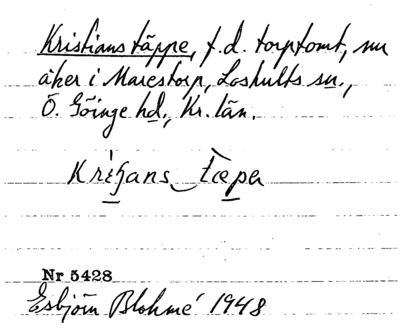 Kristianstäppe, f.d. torptomt, nu
åker i Marestorp, Loshults sn.,
Ö. Göinge hd., Kr. län.
Nr 5428
Esbjörn Blohmé 1948